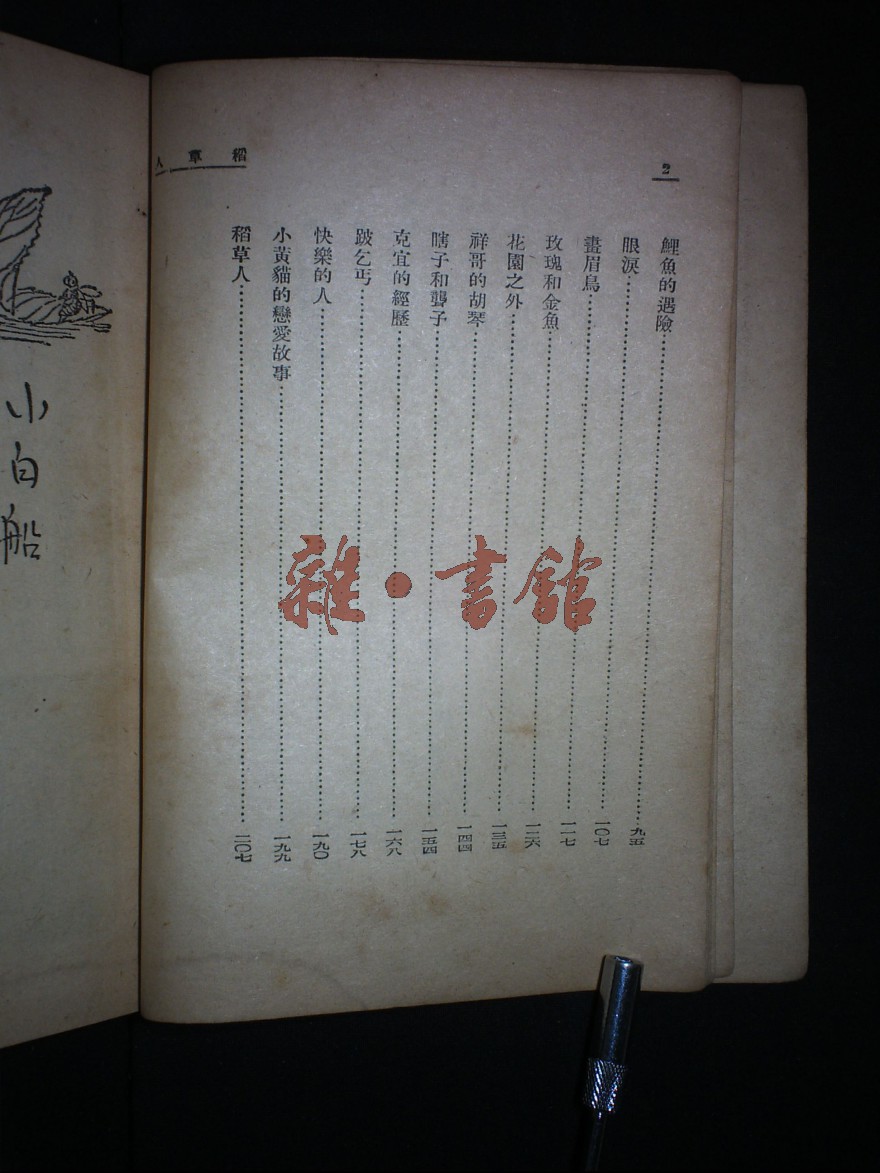 2
稻草人
鯉魚的遇險……九五
眼淚……一〇七
畫眉鳥……一一七
玫瑰和金魚……一二六
花園之外……一三五
祥哥的胡琴……一四四
瞎子和聾子……一五四
克宜的經歷……一六八
跛乞丐……一七八
快樂的人……一九〇
小黃貓的戀愛故事……一九九
稻草人……二〇七
小白船
雜·書館